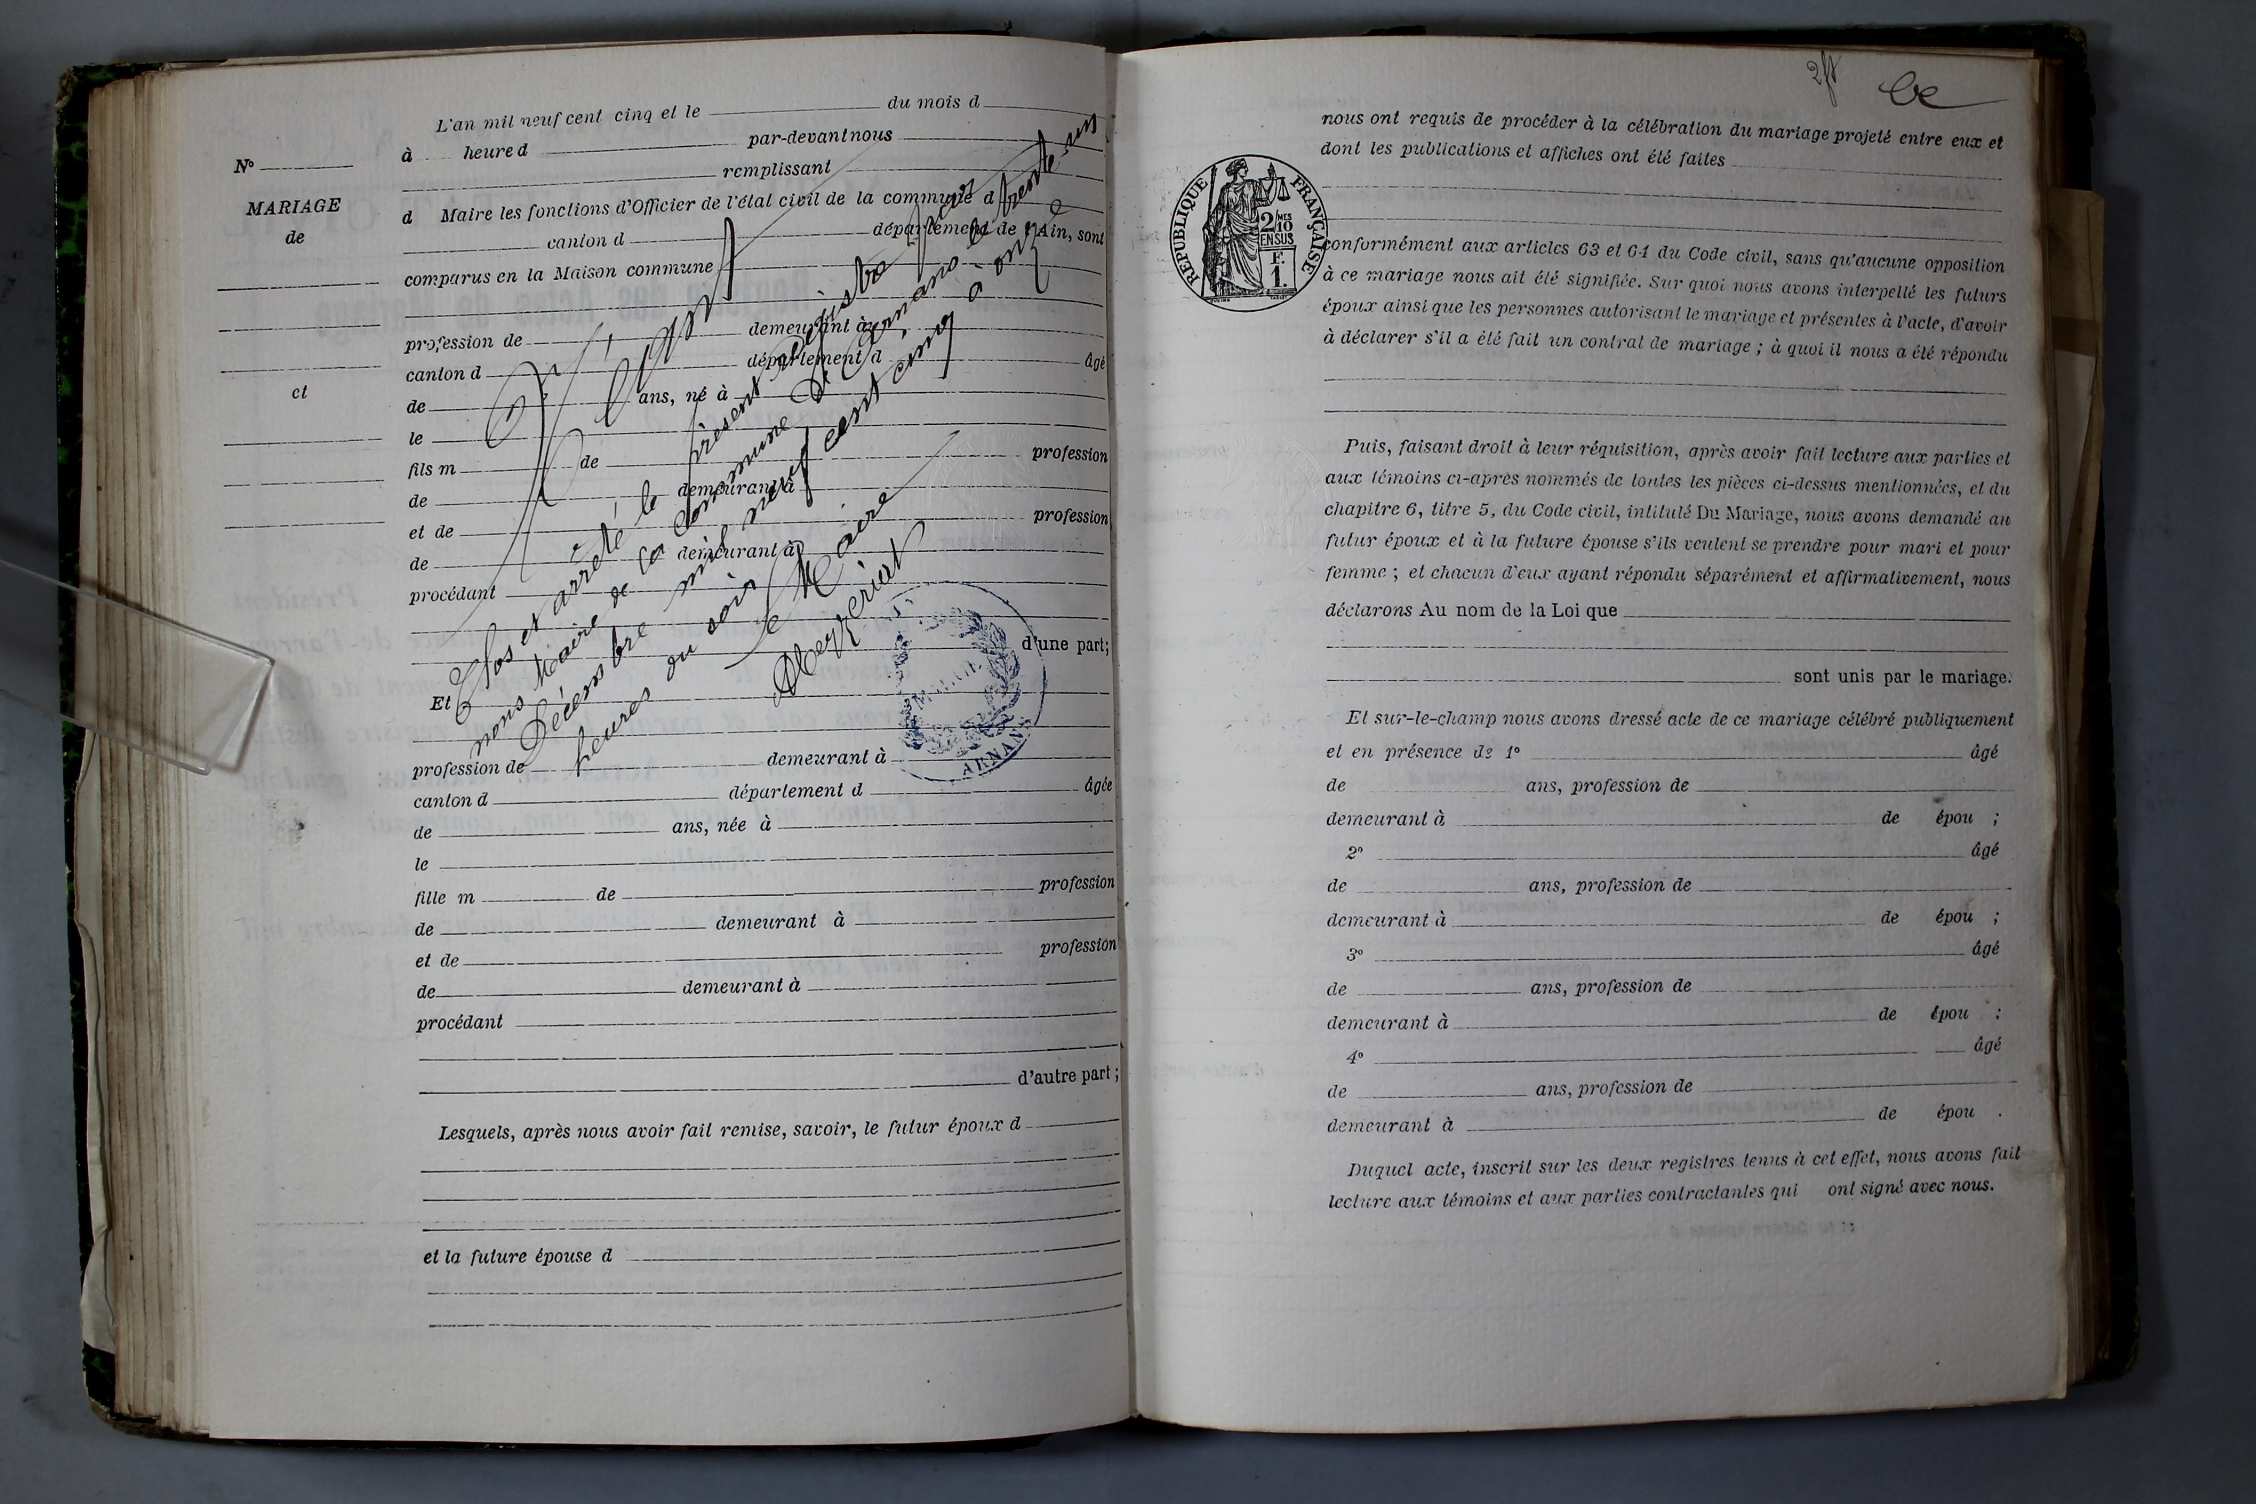 N°
MARIAGE
de
et
L'an mil neuf cent cinq et le du mois d
à heure d par-devant nous
remplissant
d Maire les fonctions d'Officier de l'état civil de la commune d
canton d département de l'Ain, sont
comparus en la Maison commune
profession de demeurant à
canton d département d âgé
de ans, né à
le
fils m de profession
de demeurant à
et de profession
de demeurant à
procédant
d'une part;
Et
profession de demeurant à
canton d département d âgée
de ans, née à
le
fille m de profession
de demeurant à
et de profession
de demeurant à
procédant
d'autre part;
Lesquels, après nous avoir fait remise, savoir, le futur époux d
et la future épouse d
Clos et arrêté le présent registre par
nous Maire de la Commune d'Arnans le trente-un
Décembre mil neuf cent cinq à onze
heures du soir
Le Maire
ARNANS
be
nous ont requis de procéder à la célébration du mariage projeté entre eux et
dont les publications et affiches ont été faites
RÉPUBLIQUE FRANÇAISE
2/10
MES
EN SUS
F.
1.
conformément aux articles 63 et 64 du Code civil, sans qu'aucune opposition
à ce mariage nous ait été signifiée. Sur quoi nous avons interpellé les futurs
époux ainsi que les personnes autorisant le mariage et présentes à l'acte, d'avoir
à déclarer s'il a été fait un contrat de mariage ; à quoi il nous a été répondu
Puis, faisant droit à leur réquisition, après avoir fait lecture aux parties et
aux témoins ci-après nommés de toutes les pièces ci-dessus mentionnées, et du
chapitre 6, titre 5, du Code civil, intitulé Du Mariage, nous avons demandé au
futur époux et à la future épouse s'ils veulent se prendre pour mari et pour
femme ; et chacun d'eux ayant répondu séparément et affirmativement, nous
déclarons Au nom de la Loi que
sont unis par le mariage.
Et sur-le-champ nous avons dressé acte de ce mariage célébré publiquement
et en présence de 1° âgé
de ans, profession de
demeurant à de épou ;
2° âgé
de ans, profession de
demeurant à de épou ;
3° âgé
de ans, profession de
demeurant à de épou ;
4° âgé
de ans, profession de
demeurant à de épou .
Duquel acte, inscrit sur les deux registres tenus à cet effet, nous avons fait
lecture aux témoins et aux parties contractantes qui ont signé avec nous.